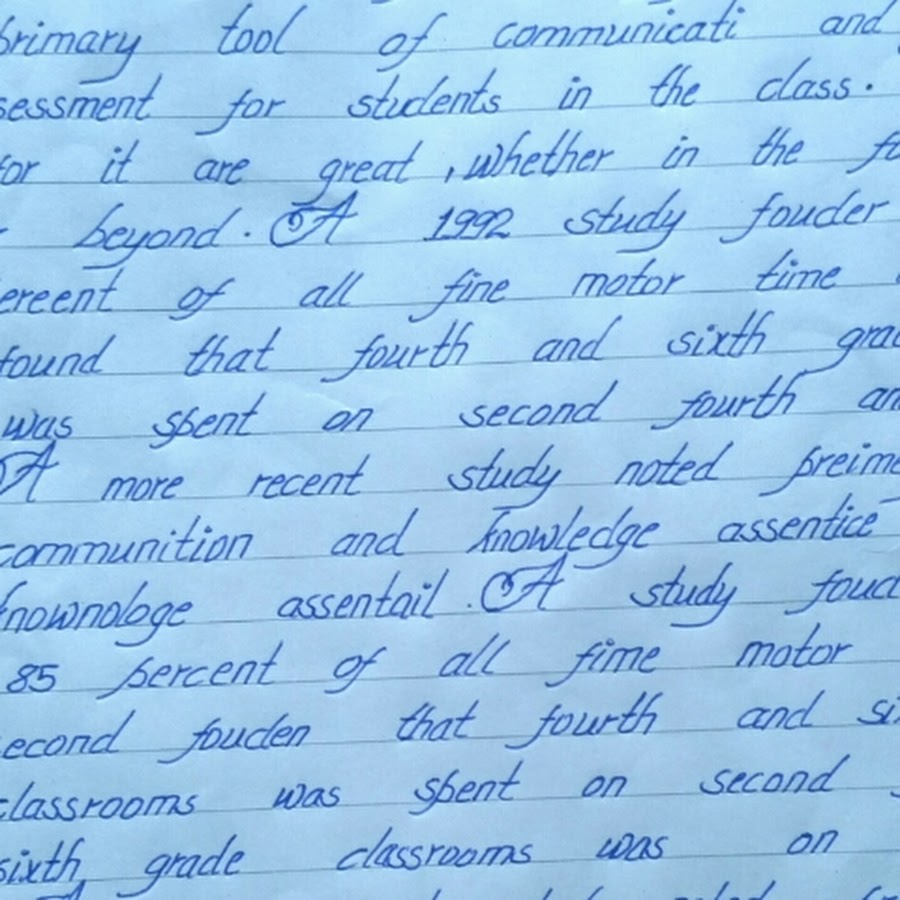 primary tool of communicati and
sessment for students in the class.
for it are great , whether in the fo
beyond. A 1992 study fouder
ereent of all fine motor time
found that fourth and sixth grad
was spent on second fourth an
A more recent study noted preime
communition and knowledge assentice
knownologe assentail. A study foud
85 percent of all fime motor
econd fouden that fourth and six
classrooms was spent on second
sixth grade classrooms was on